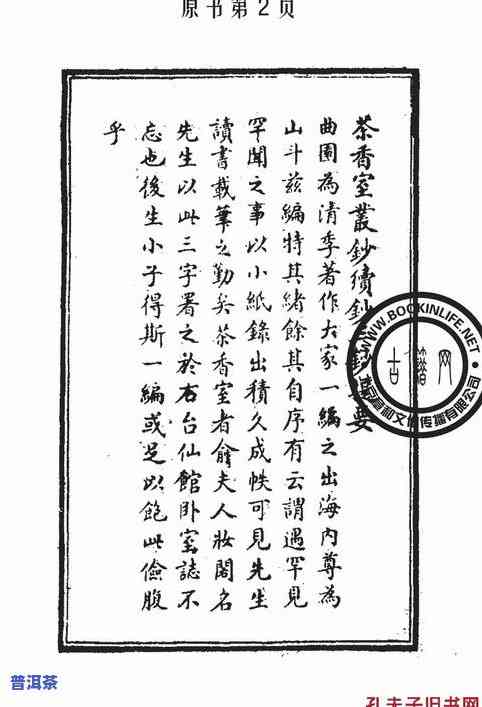 原书第2页
茶香室叢鈔續鈔三鈔提要
曲園為清季著作大家一編之出海內尊為
山斗茲編特其緒餘其自序有云謂遇罕見
罕聞之事以小紙錄出積久成帙可見先生
讀書載筆之勤矣茶香室者俞夫人妝閣名
先生以此三字署之於右台仙館卧室誌不
忘也後生小子得斯一編或足以飽此儉腹
乎
WWW.BOOKINLIFE.NET
古籍网
文化传播有限公司
普洱茶
孔夫子旧书网